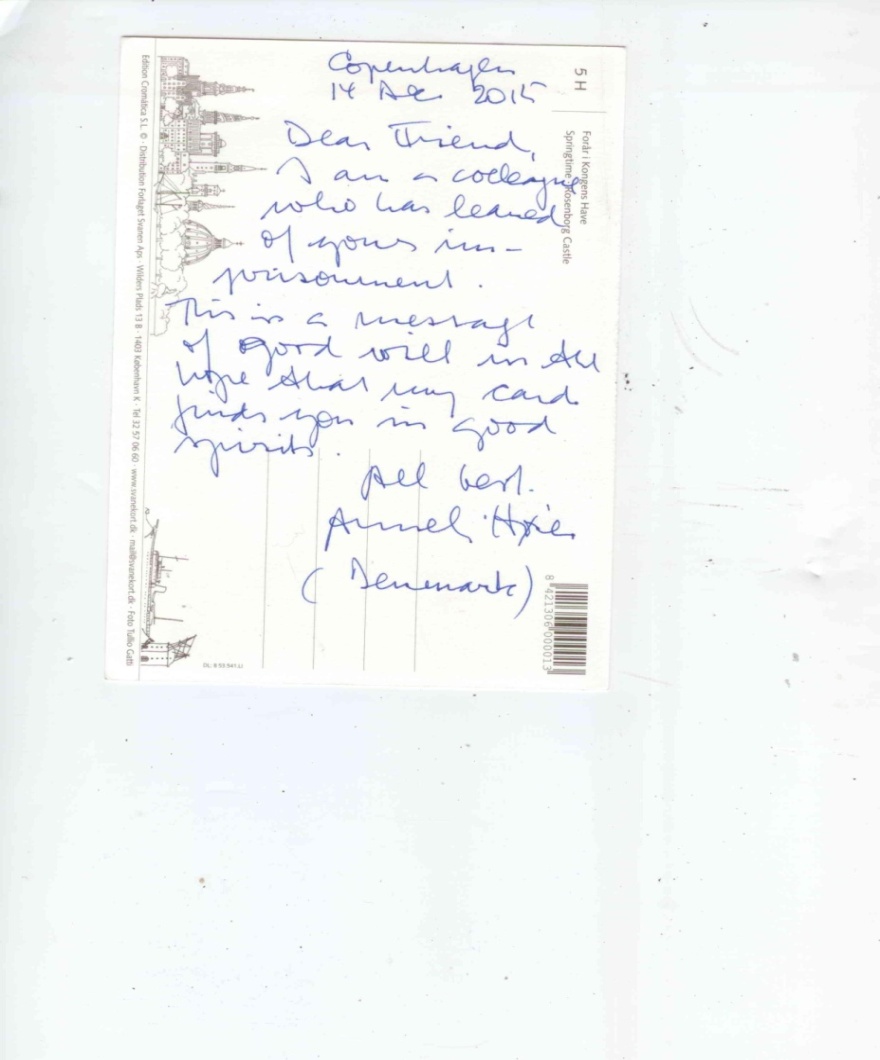 Copenhagen
14 Dec 2015
Dear Friend,
I am a colleague
who has leaned
of yours im-
prisonment.
This is a message
of good will in the
hope that my card
finds you in good
spirits.
All best.
(Denemark)
5 H
Forår i Kongens Have
Springtime, Rosenborg Castle
Edition Cromática S.L. © - Distribution Forlaget Svanen Aps - Wilders Plads 13 B - 1403 København K - Tel 32 57 06 60 - www.svanekort.dk - mail@svanekort.dk - Foto Tullio Gatti
8 421306 000013